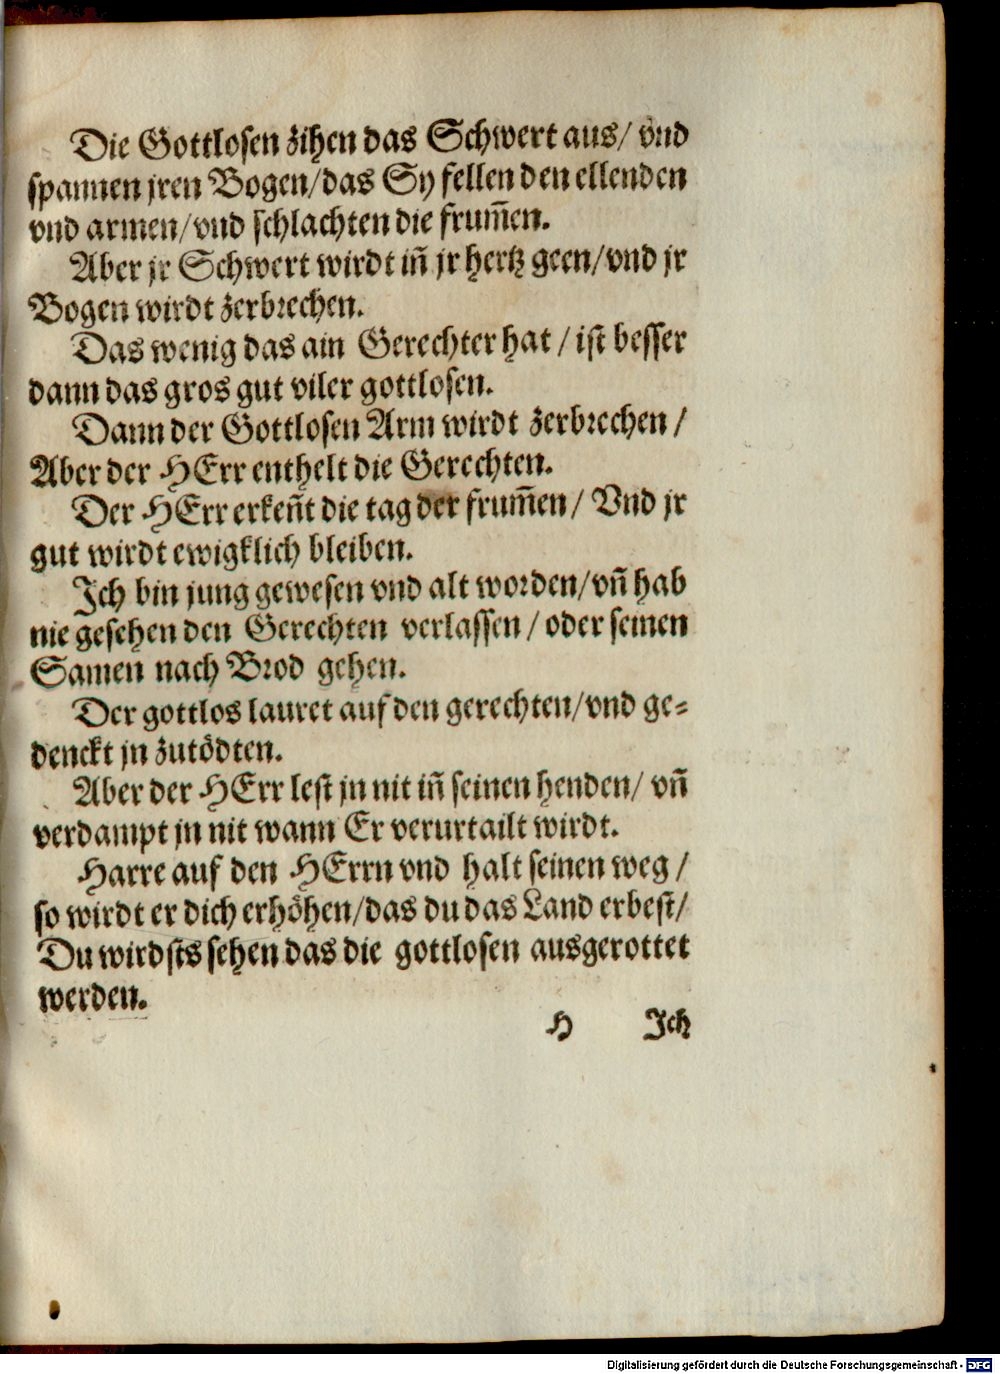 Die Gottlosen zihen das Schwert aus/ vnd
spannen jren Bogen/das Sy fellen den ellenden
vnd armen/vnd schlachten die frum̃en.
Aber jr Schwert wirdt iñ jr hertz geen/vnd jr
Bogen wirdt zerbrechen.
Das wenig das ain Gerechter hat / ist besser
dann das gros gut viler gottlosen.
Dann der Gottlosen Arm wirdt zerbrechen /
Aber der HErr enthelt die Gerechten.
Der HErr erkeñt die tag der frum̃en/ Vnd jr
gut wirdt ewigklich bleiben.
Ich bin jung gewesen vnd alt worden/vñ hab
nie gesehen den Gerechten verlassen / oder seinen
Samen nach Brod gehen.
Der gottlos lauret auf den gerechten/vnd ge⸗
denckt jn zutödten.
Aber der HErr lest jn nit iñ seinen henden/ vñ
verdampt jn nit wann Er verurtailt wirdt.
Harre auf den HErrn vnd halt seinen weg /
so wirdt er dich erhöhen/das du das Land erbest/
Du wirdsts sehen das die gottlosen ausgerottet
werden.
H Ich
Digitalisierung gefördert durch die Deutsche Forschungsgemeinschaft - DFG